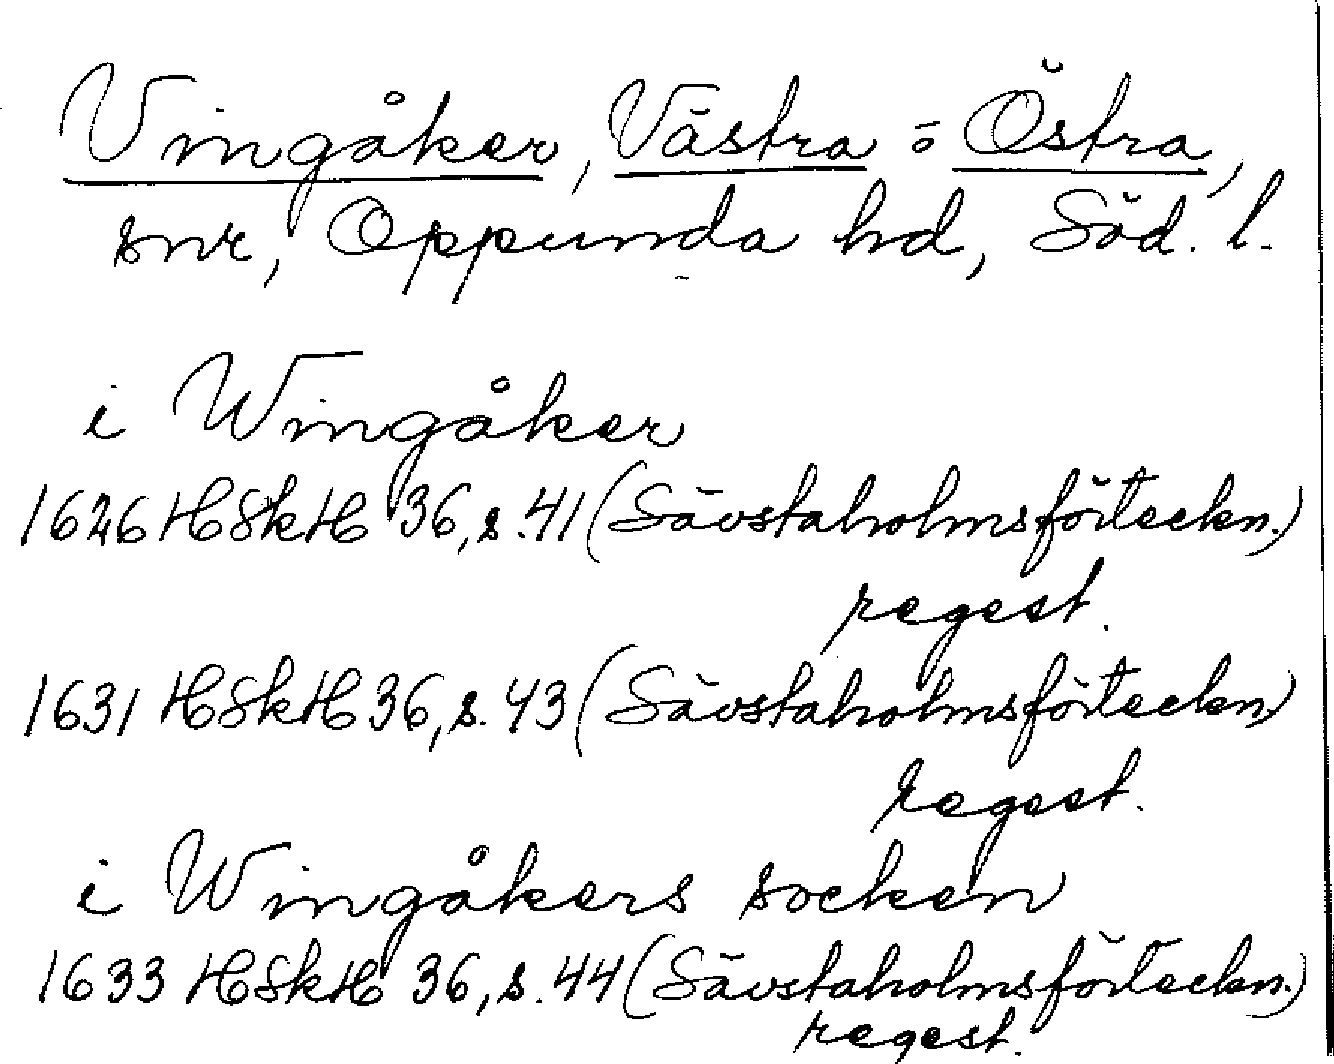 Vingåker, Västra o Östra,
snr, Oppunda hd, Söd. l.
i Wingåker
1626 HSkH 36, s. 41 (Sävstaholmsförteckn.)
regest.
1631 HSkH 36, s. 43 (Sävstaholmsförteckn)
regest.
i Wingåkers socken
1633 HSkH 36, s. 44 (Sävstaholmsförteckn.)
regest.